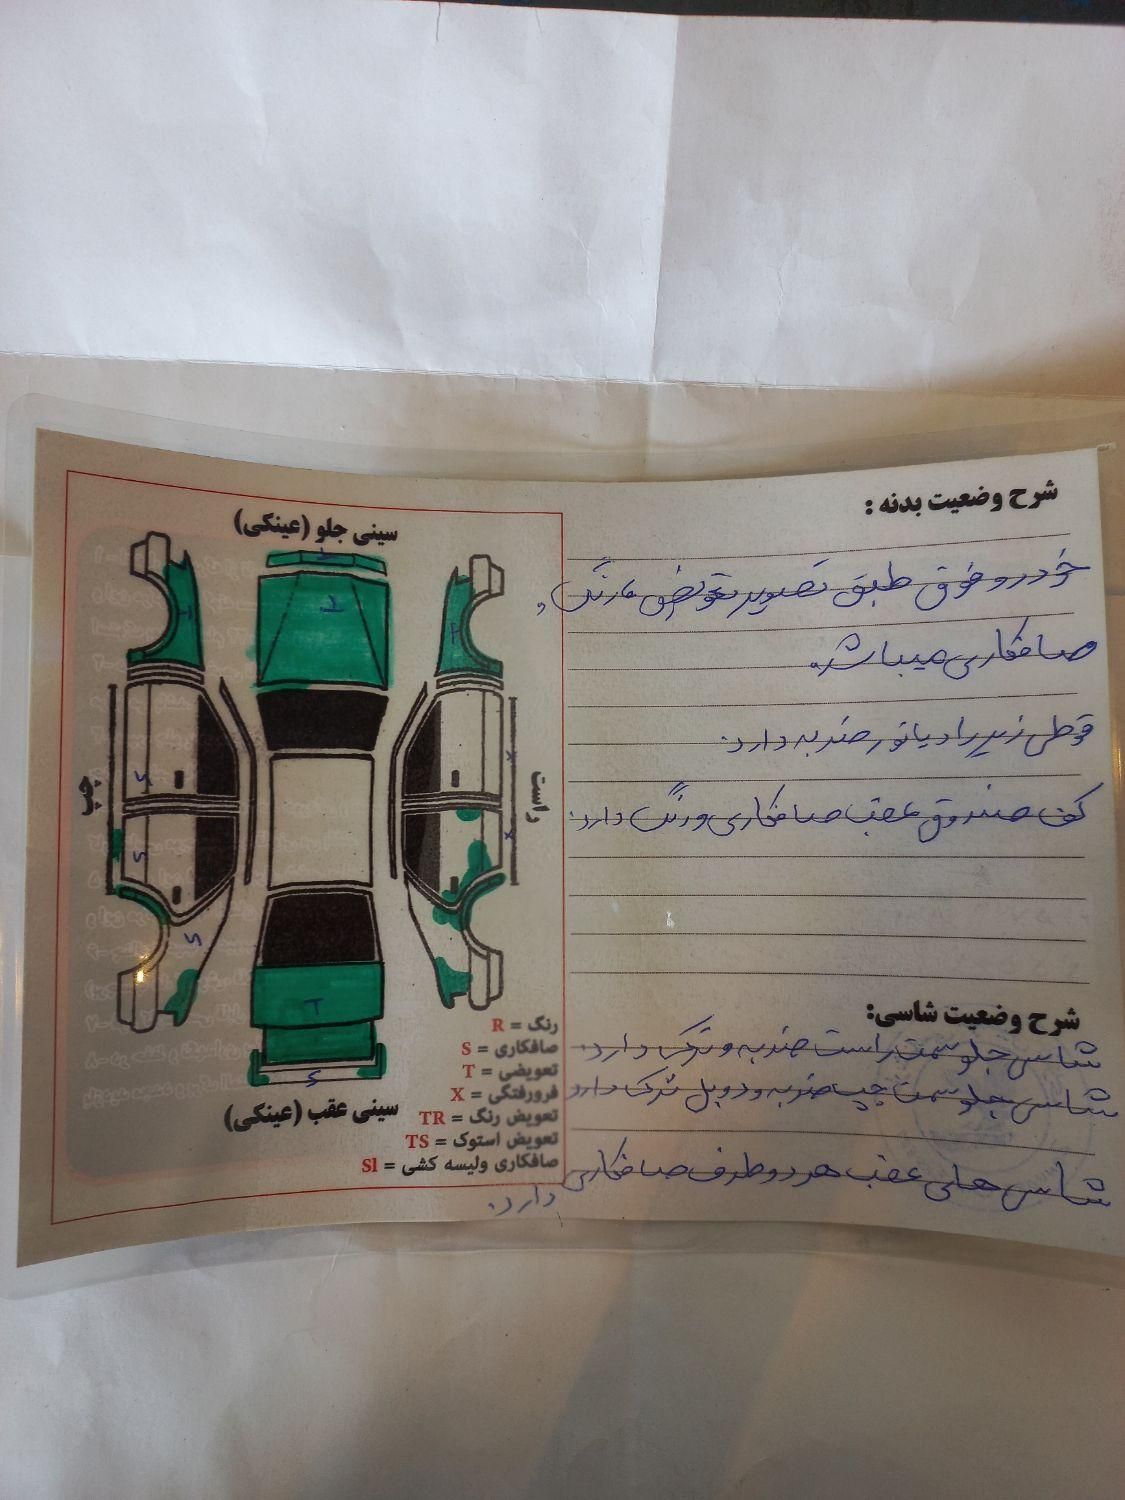 شرح وضعیت بدنه :
خودرو فوق طبق تصویر تعویض، رنگ و
صافکاری میباشد.
قوطی زیر رادیاتور ضربه دارد.
کف صندوق عقب صافکاری و رنگ دارد.
شرح وضعیت شاسی:
شاسی جلو سمت راست ضربه و ترک دارد.
شاسی جلو سمت چپ ضربه و دوبل ترک دارد
شاسی های عقب هر دو طرف صافکاری
دارد.
سینی جلو (عینکی)
T
T
T
T
راست
چپ
X
X
S
S
S
T
S
سینی عقب (عینکی)
رنگ = R
صافکاری = S
تعویضی = T
فرورفتگی = X
تعویض رنگ = TR
تعویض استوک = TS
صافکاری ولیسه کشی = Sl